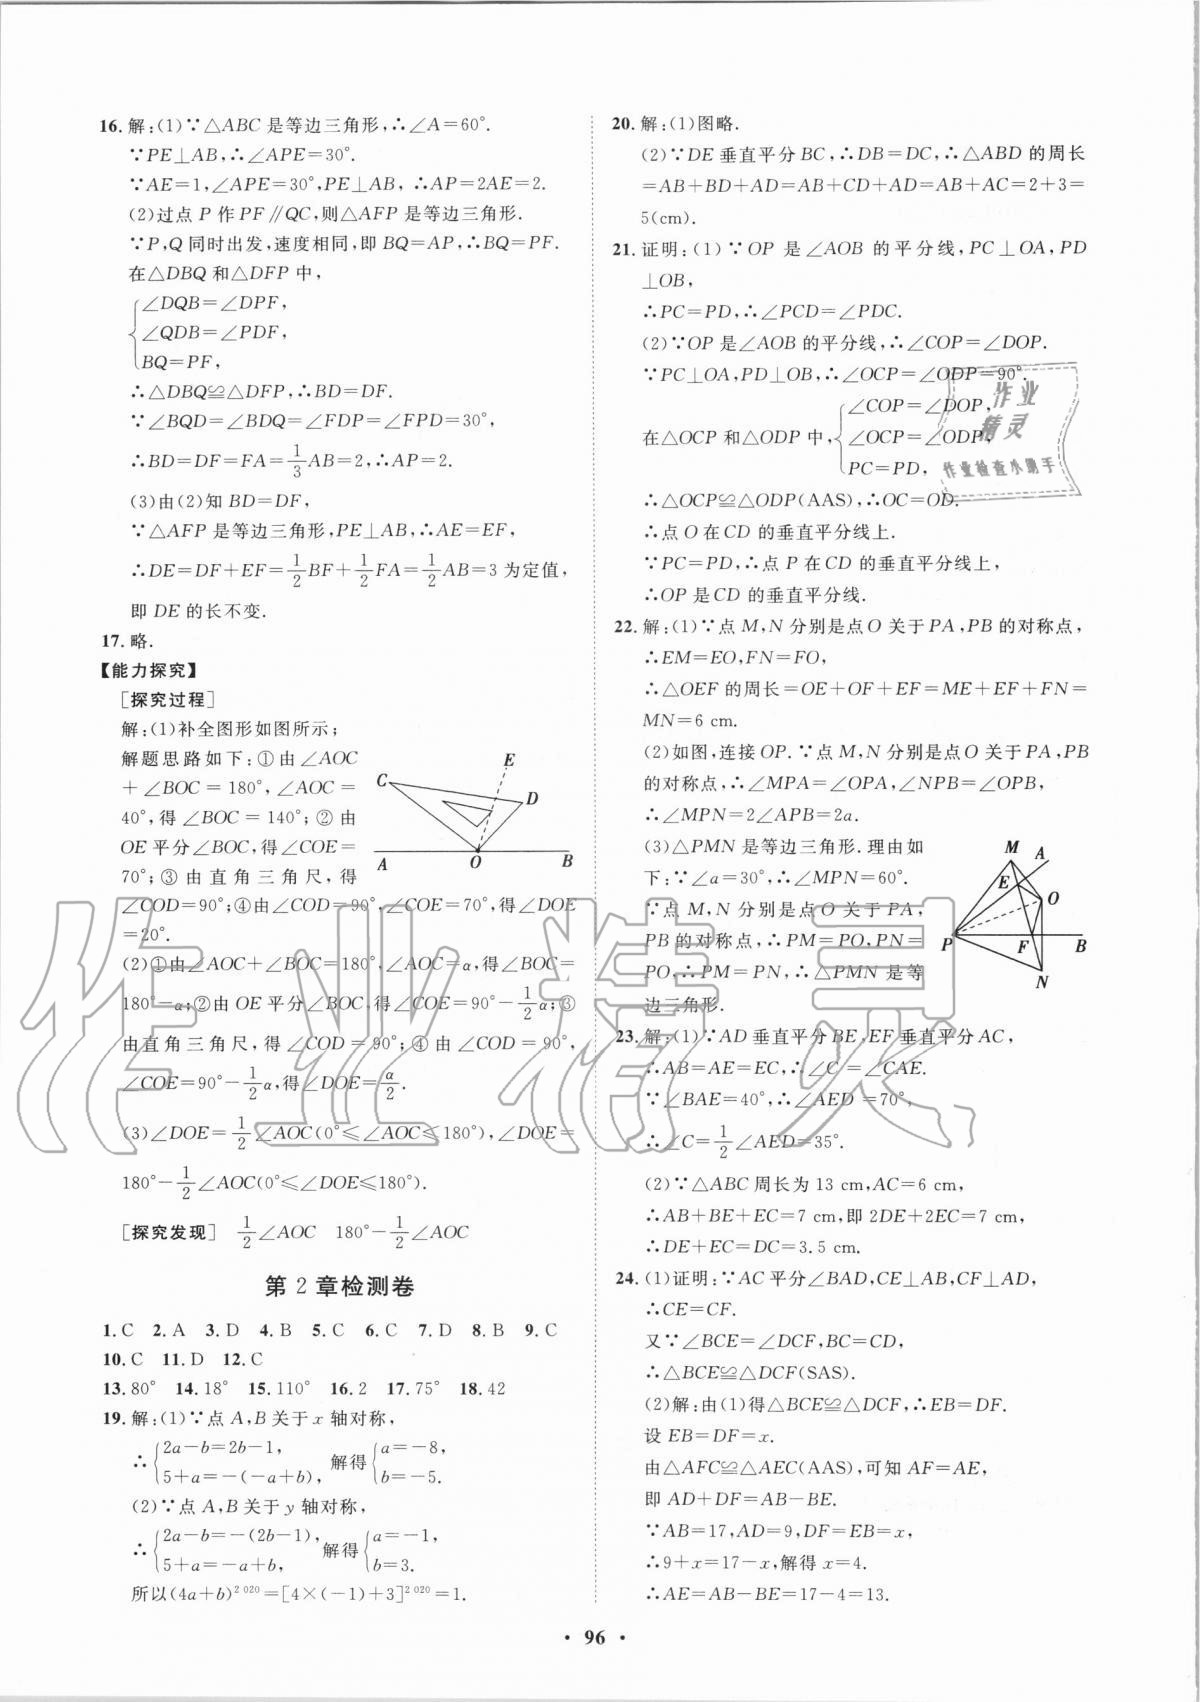 16. 解:(1)∵△ABC 是等边三角形,∴∠A=60°.
∵PE⊥AB,∴∠APE=30°.
∵AE=1,∠APE=30°,PE⊥AB, ∴AP=2AE=2.
(2)过点 P 作 PF∥QC,则△AFP 是等边三角形.
∵P,Q 同时出发,速度相同,即 BQ=AP,∴BQ=PF.
在△DBQ 和△DFP 中,
∠DQB=∠DPF,
∠QDB=∠PDF,
BQ=PF,
∴△DBQ≌△DFP,∴BD=DF.
∵∠BQD=∠BDQ=∠FDP=∠FPD=30°,
∴BD=DF=FA=1/3AB=2,∴AP=2.
(3)由(2)知 BD=DF,
∵△AFP 是等边三角形,PE⊥AB,∴AE=EF,
∴DE=DF+EF=1/2BF+1/2FA=1/2AB=3 为定值,
即 DE 的长不变.
17. 略.
【能力探究】
[探究过程]
解:(1)补全图形如图所示;
解题思路如下:①由∠AOC
+∠BOC=180°,∠AOC=
40°,得∠BOC=140°;②由
OE平分∠BOC,得∠COE=
70°;③由直角三角尺,得
∠COD=90°;④由∠COD=90°,∠COE=70°,得∠DOE
=20°.
C
E
D
A
O
B
(2)①由∠AOC+∠BOC=180°,∠AOC=α,得∠BOC=
180°-α;②由 OE 平分∠BOC,得∠COE=90°-1/2α;③
由直角三角尺,得∠COD=90°;④由∠COD=90°,
∠COE=90°-1/2α,得∠DOE=α/2.
(3)∠DOE=1/2∠AOC(0°≤∠AOC≤180°),∠DOE=
180°-1/2∠AOC(0°≤∠DOE≤180°).
[探究发现] 1/2∠AOC 180°-1/2∠AOC
第 2 章检测卷
1. C 2. A 3. D 4. B 5. C 6. C 7. D 8. B 9. C
10. C 11. D 12. C
13. 80° 14. 18° 15. 110° 16. 2 17. 75° 18. 42
19. 解:(1)∵点 A,B 关于 x 轴对称,
∴{2a-b=2b-1, 解得{a=-8,
5+a=-(-a+b), b=-5.
(2)∵点 A,B 关于 y 轴对称,
∴{2a-b=-(2b-1), 解得{a=-1,
5+a=-a+b, b=3.
所以(4a+b)^2 020=[4×(-1)+3]^2 020=1.
20. 解:(1)图略.
(2)∵DE 垂直平分 BC,∴DB=DC,∴△ABD 的周长
=AB+BD+AD=AB+CD+AD=AB+AC=2+3=
5(cm).
21. 证明:(1)∵OP 是∠AOB 的平分线,PC⊥OA,PD
⊥OB,
∴PC=PD,∴∠PCD=∠PDC.
(2)∵OP 是∠AOB 的平分线,∴∠COP=∠DOP.
∵PC⊥OA,PD⊥OB,∴∠OCP=∠ODP=90°.
在△OCP 和△ODP 中,{∠COP=∠DOP,
∠OCP=∠ODP,
PC=PD,
∴△OCP≌△ODP(AAS),∴OC=OD.
∴点 O 在 CD 的垂直平分线上.
∵PC=PD,∴点 P 在 CD 的垂直平分线上,
∴OP 是 CD 的垂直平分线.
22. 解:(1)∵点 M,N 分别是点 O 关于 PA,PB 的对称点,
∴EM=EO,FN=FO,
∴△OEF 的周长=OE+OF+EF=ME+EF+FN=
MN=6 cm.
(2)如图,连接 OP. ∵点 M,N 分别是点 O 关于 PA,PB
的对称点,∴∠MPA=∠OPA,∠NPB=∠OPB,
∴∠MPN=2∠APB=2a.
(3)△PMN 是等边三角形. 理由如
下:∵∠a=30°,∴∠MPN=60°.
∵点 M,N 分别是点 O 关于 PA,
PB 的对称点,∴PM=PO,PN=
PO,∴PM=PN,∴△PMN 是等
边三角形.
M
A
E
O
P
F
B
N
23. 解:(1)∵AD 垂直平分 BE,EF 垂直平分 AC,
∴AB=AE=EC,∴∠C=∠CAE.
∵∠BAE=40°,∴∠AED=70°,
∴∠C=1/2∠AED=35°.
(2)∵△ABC 周长为 13 cm,AC=6 cm,
∴AB+BE+EC=7 cm,即 2DE+2EC=7 cm,
∴DE+EC=DC=3.5 cm.
24. (1)证明:∵AC 平分∠BAD,CE⊥AB,CF⊥AD,
∴CE=CF.
又∵∠BCE=∠DCF,BC=CD,
∴△BCE≌△DCF(SAS).
(2)解:由(1)得△BCE≌△DCF,∴EB=DF.
设 EB=DF=x.
由△AFC≌△AEC(AAS),可知 AF=AE,
即 AD+DF=AB-BE.
∵AB=17,AD=9,DF=EB=x,
∴9+x=17-x,解得 x=4.
∴AE=AB-BE=17-4=13.
作业
精灵
作业检查小助手
作业精灵
· 96 ·